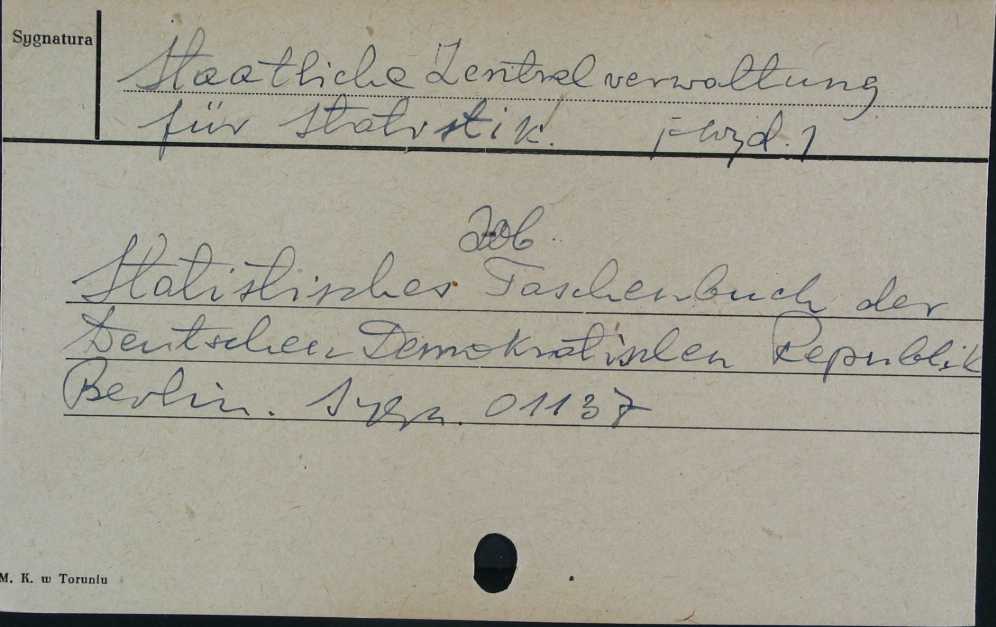 Sygnatura
Staatliche Zentralverwaltung
für Statistik. [wyd.]
Zob.
Statistisches Taschenbuch der
Deutschen Demokratischen Republik
Berlin. Sygn. 01137
M. K. w Toruniu